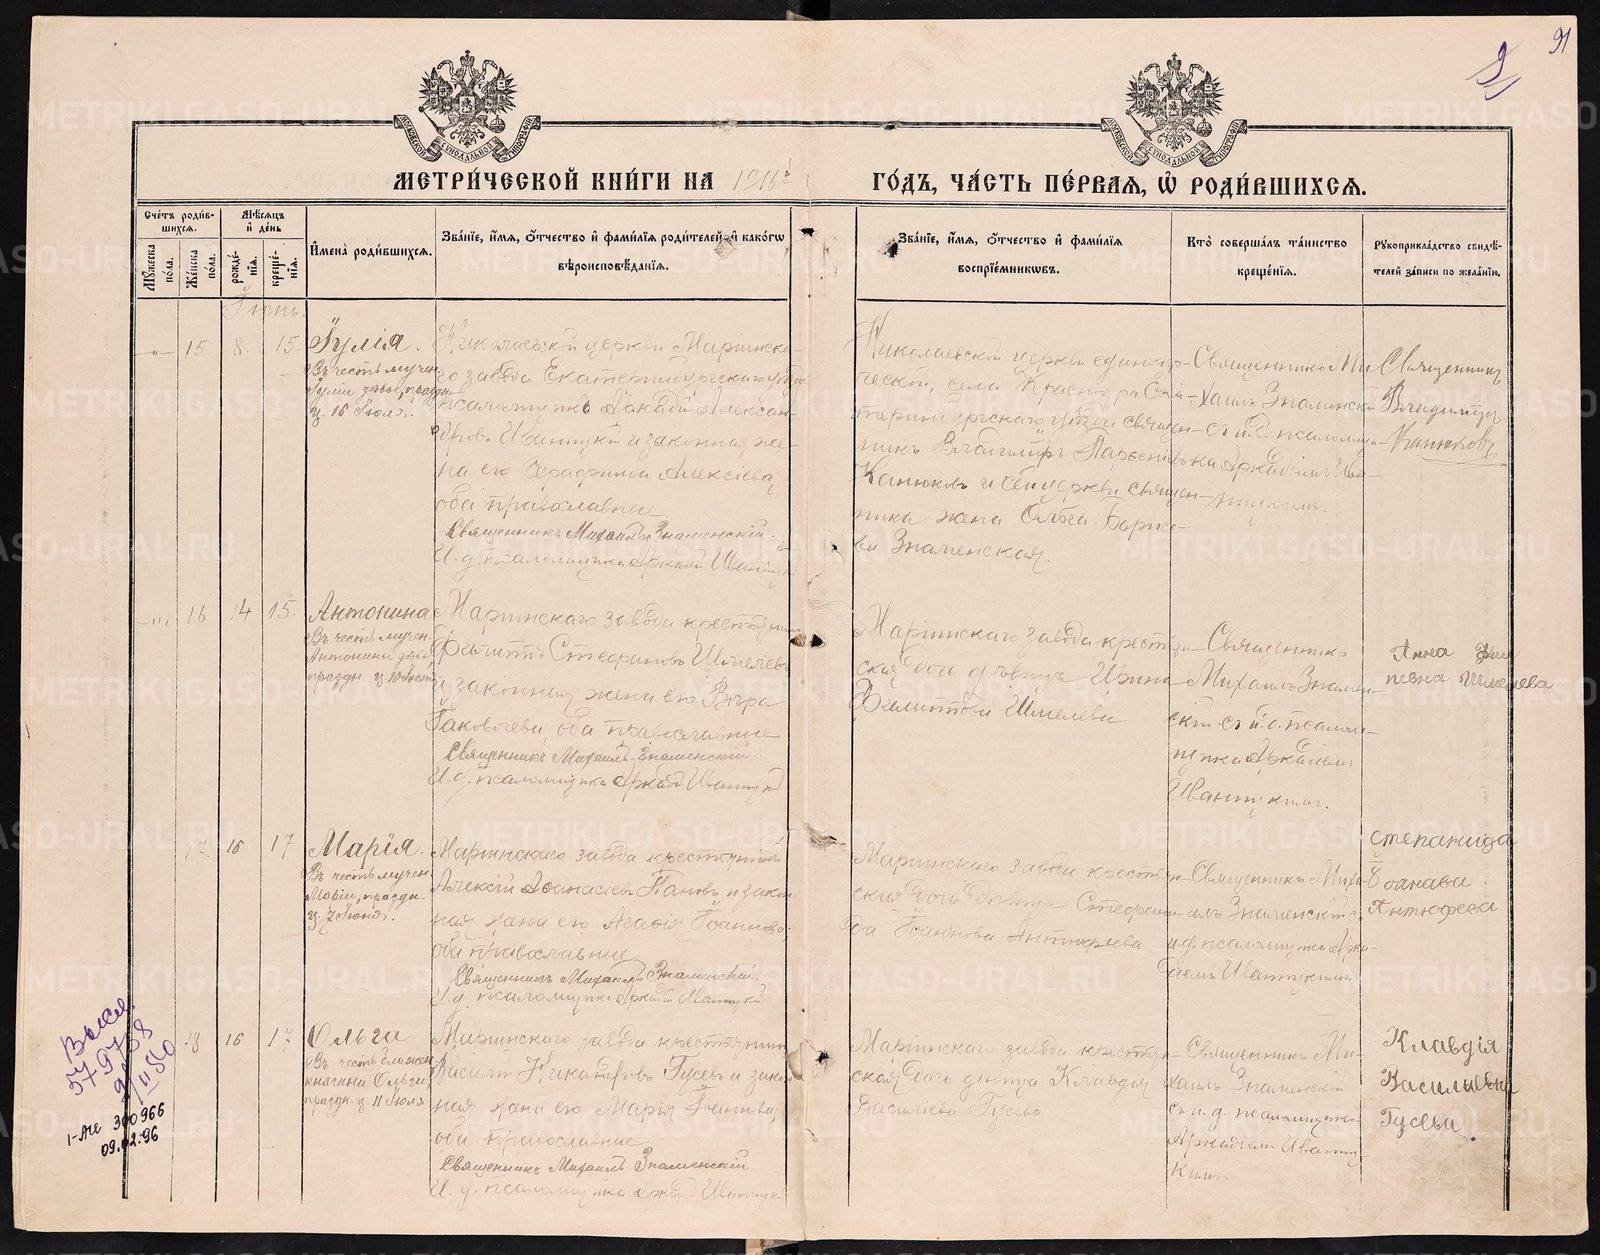 91
МЕТРИЧЕСКОЙ КНИГИ НА 1916 ГОДЪ, ЧАСТЬ ПЕРВАЯ, Ѡ РОДИВШИХСЯ.
МОСКОВСКОЙ СѴНОДАЛЬНОЙ ТИПОГРАФІИ
МОСКОВСКОЙ СѴНОДАЛЬНОЙ ТИПОГРАФІИ
Счетъ родившихся.
Мужеска пола.
Женска пола.
Мѣсяцъ и день
рожденія.
крещенія.
Имена родившихся.
Званіе, имя, отчество и фамилія родителей и какогѡ
вѣроисповѣданія.
Званіе, имя, отчество и фамилія
воспріемниковъ.
Кто совершалъ таинство
крещенія.
Рукоприкладство свидѣ-
телей записи по желанію.
Іюнь.
15. 8. 15. Іулія.
Въ честь мучен.
Іуліи дѣвы, праздн.
ц. 16 Іюля.
Николаевской церкви Маріинска-
го завода Екатеринбургскаго уѣзда
псаломщикъ Аркадій Алексан-
дровъ Иваницкій и законная же-
на его Серафима Алексіева,
оба православные
Священникъ Михаилъ Знаменскій.
И. д. псаломщика Аркадій Иваницкій
Николаевской церкви единовѣр-
ческой, села Красногорскаго Екатеринбургскаго уѣзда священ-
никъ Владиміръ Парѳеніевъ
Канюковъ и сей церкви священ-
ника жена Ольга Борисо-
ва Знаменская.
Священникъ Ми-
хаилъ Знаменскій
съ и. д. псаломщи-
ка Аркадіемъ Ива-
ницкимъ.
Священникъ
Владиміръ
Канюковъ
16 14 15. Антонина
Въ честь мучен.
Антонины дѣвы,
праздн. ц. 10 Іюня
Маріинскаго завода крестьянинъ
Филиппъ Стефановъ Шмелевъ
и законная жена его Вѣра
Іаковлева, оба православные
Священникъ Михаилъ Знаменскій.
И. д. псаломщика Аркадій Иваницкій
Маріинскаго завода крестьян-
ская дочь дѣвица Ирина
Филиппова Шмелева
Священникъ
Михаилъ Знамен-
скій съ и. д. псалом-
щика Аркадіемъ
Иваницкимъ.
Анна Фили
певна Шмелева
17 16 17 Марія.
Въ честь мучен.
Маріи, праздн.
ц. 7 Іюня.
Маріинскаго завода крестьянинъ
Алексій Аѳанасіевъ Пановъ и закон-
ная жена его Агафія Іоаннова,
оба православные
Священникъ Михаилъ Знаменскій.
И. д. псаломщика Аркадій Иваницкій
Маріинскаго завода крестьян-
ская дочь дѣвица Стефани-
да Іоаннова Антюфьева
Священникъ Миха-
илъ Знаменскій съ
и. д. псаломщика Арка-
діемъ Иваницкимъ
степанида
Іоанава
Антюфева
18 16 17 Ольга
Въ честь блажен.
княгини Ольги,
праздн. ц. 11 Іюля
Маріинскаго завода крестьянинъ
Василій Никандровъ Гусевъ и закон-
ная жена его Марія Іоаннова,
оба православные
Священникъ Михаилъ Знаменскій.
И. д. псаломщика Аркадій Иваницкій
Маріинскаго завода крестьян-
ская дочь дѣвица Клавдія
Василіева Гусева
Священникъ Ми-
хаилъ Знаменскій
съ и. д. псаломщика
Аркадіемъ Иваниц-
кимъ.
Клавдія
Васильевна
Гусева
300966
09.02.96
METRIKI.GASO-URAL.RU